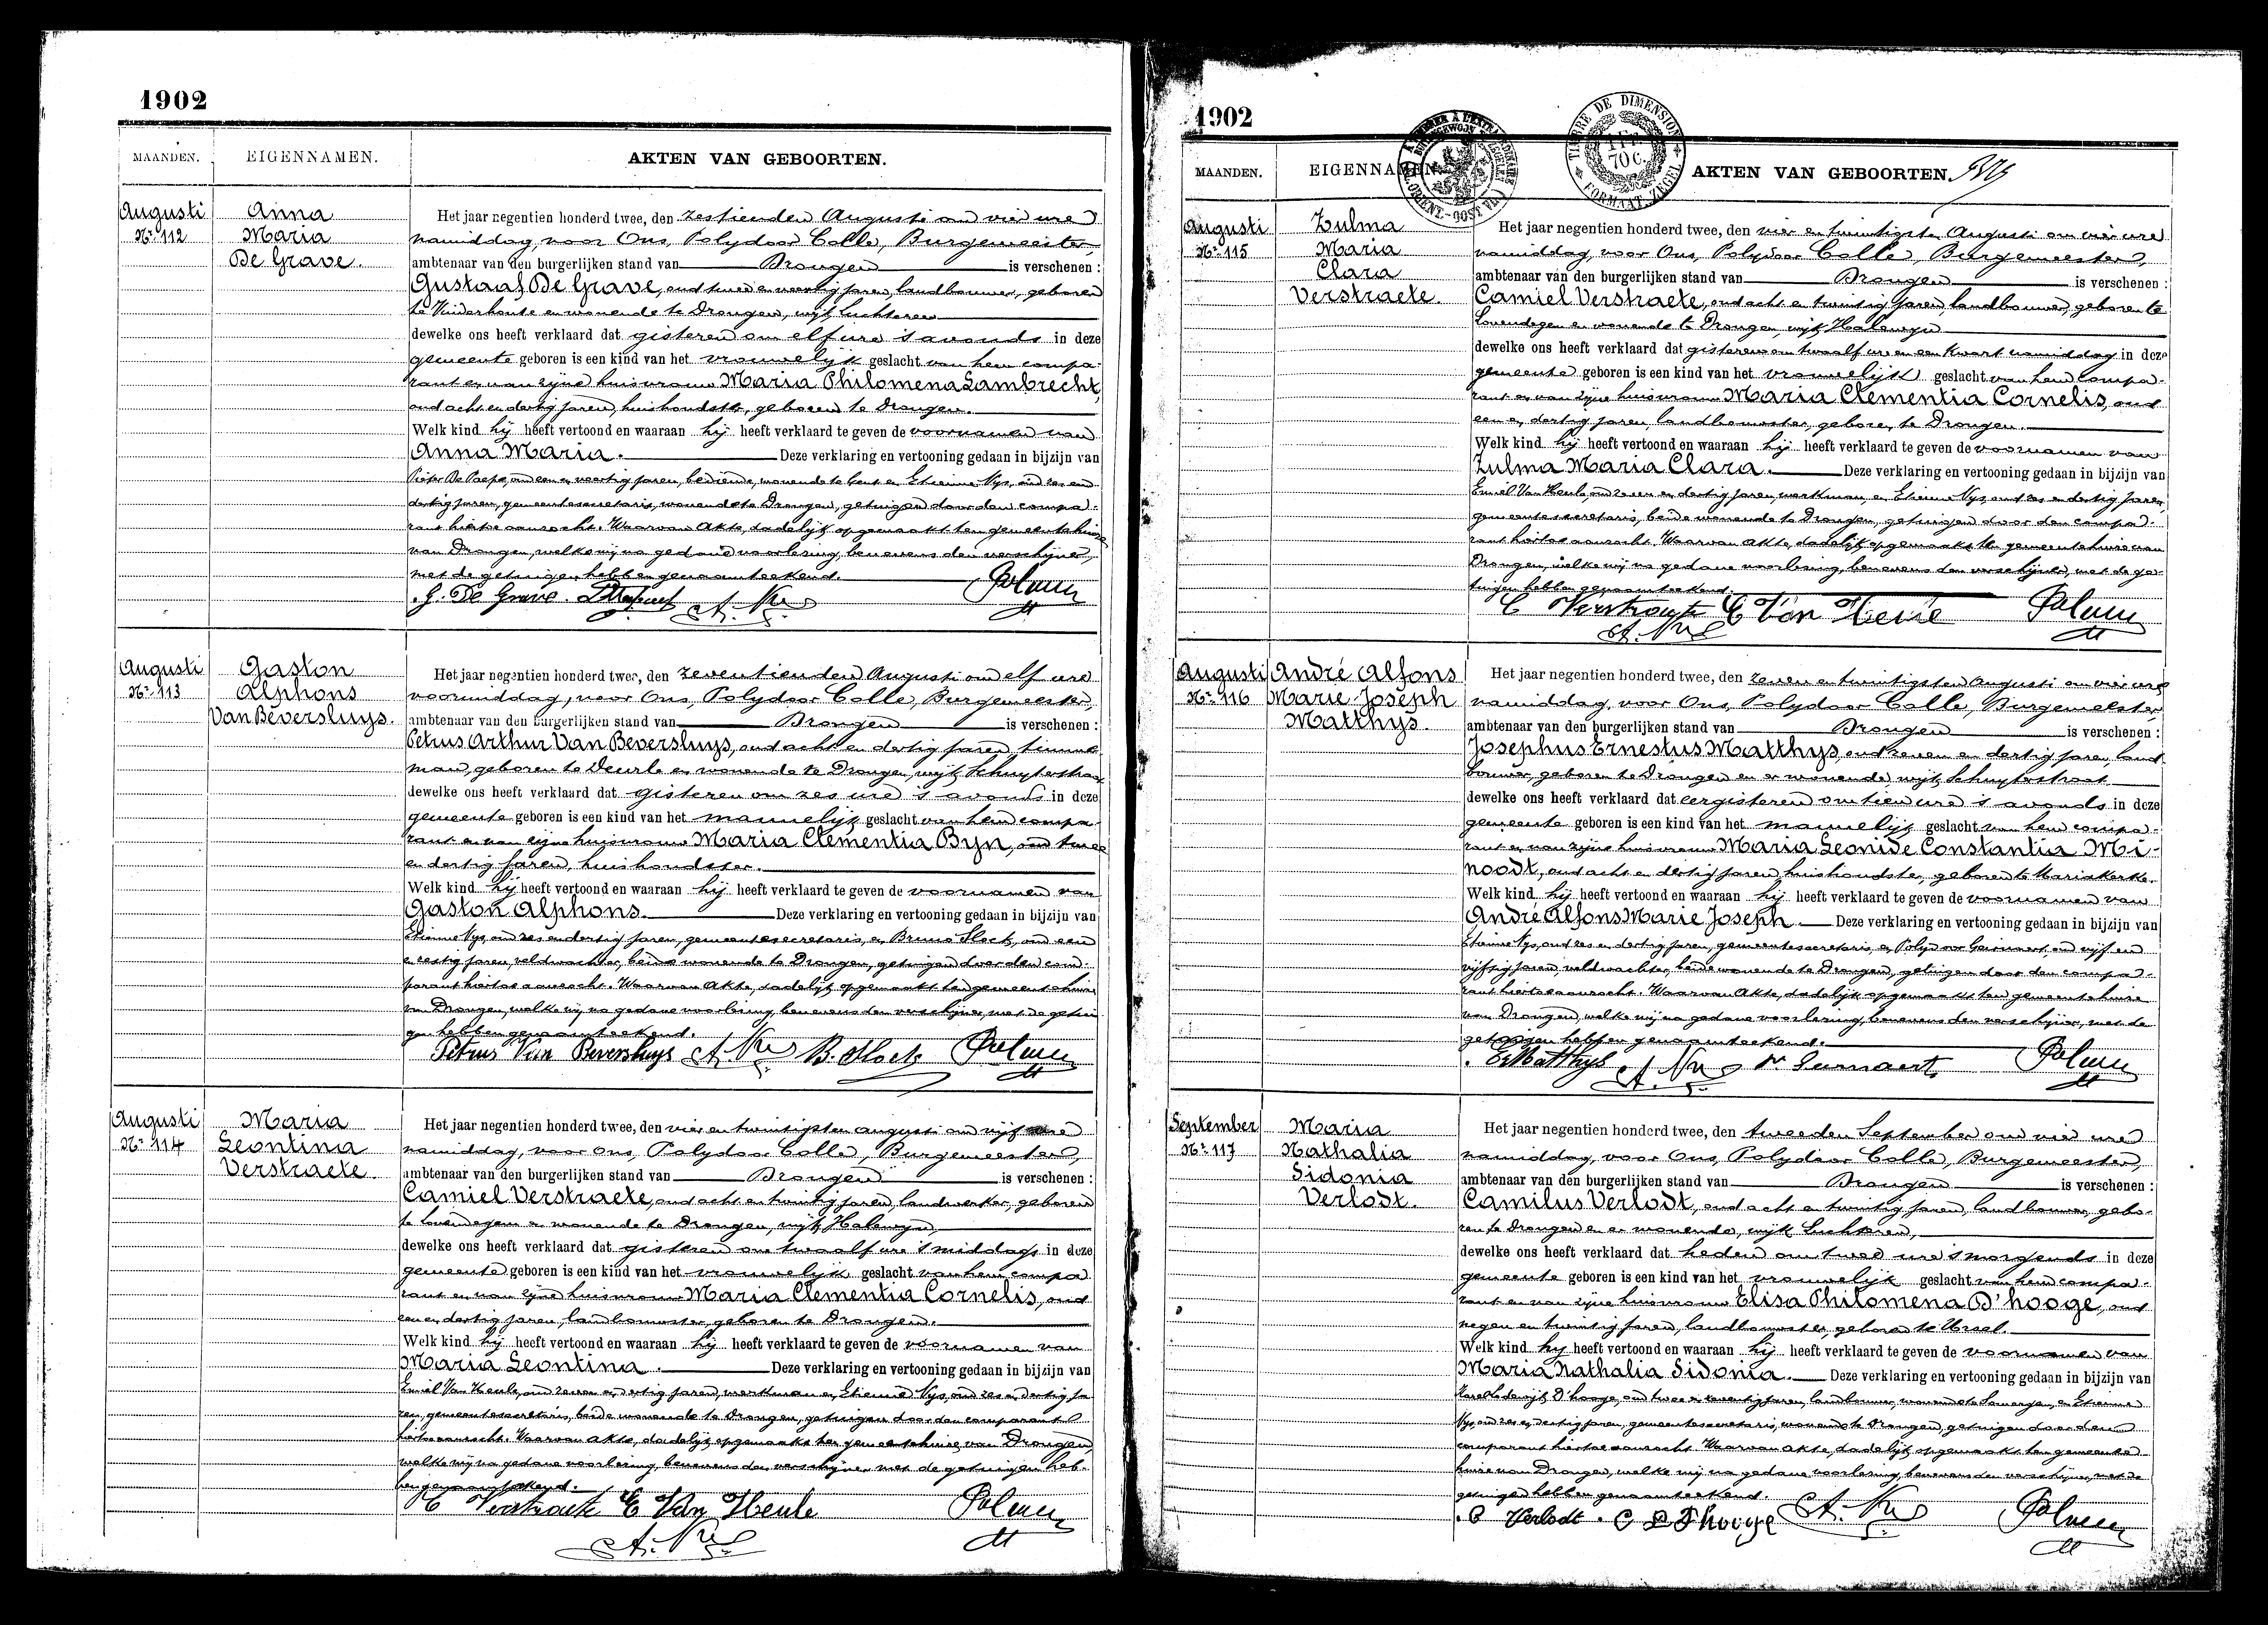 1902
MAANDEN.
EIGENNAMEN.
AKTEN VAN GEBOORTEN.
Augusti
Nr. 112
Anna
Maria
De Grave.
Het jaar negentien honderd twee, den zestienden Augusti om vier ure
namiddag, voor Ons, Polydoor Colle, Burgemeester,
ambtenaar van den burgerlijken stand van Drongen is verschenen :
Gustaaf De Grave, oud twee en veertig jaren, landbouwer, geboren
te Vinderhoute en wonende te Drongen, wijk Luchteren
dewelke ons heeft verklaard dat gisteren om elf ure 's avonds in deze
gemeente geboren is een kind van het vrouwelijk geslacht van hem compa-
rant en van zijne huisvrouw Maria Philomena Lambrecht,
oud acht en dertig jaren, huishoudster, geboren te Drongen.
Welk kind hij heeft vertoond en waaraan hij heeft verklaard te geven de voornamen van
Anna Maria. Deze verklaring en vertooning gedaan in bijzijn van
Pieter De Paepe, oud een en veertig jaren, bediende, wonende te Gent en Etienne Nys, oud zes en
dertig jaren, gemeentesecretaris, wonende te Drongen, getuigen door den compa-
rant hiertoe aanzocht. Waarvan Akte, dadelijk opgemaakt ten gemeentehuize
van Drongen, welke wij na gedane voorlezing, benevens den verschijner,
met de getuigen hebben genaamteekend.
G. De Grave
Augusti
Nr. 113
Gaston
Alphons
Van Beversluys.
Het jaar negentien honderd twee, den zeventienden Augusti om elf ure
voormiddag, voor Ons, Polydoor Colle, Burgemeester,
ambtenaar van den burgerlijken stand van Drongen is verschenen :
Petrus Arthur Van Beversluys, oud acht en dertig jaren, timmer
man, geboren te Deurle en wonende te Drongen, wijk Schuyterstraat
dewelke ons heeft verklaard dat gisteren om zes ure 's avonds in deze
gemeente geboren is een kind van het mannelijk geslacht van hem compa-
rant en van zijne huisvrouw Maria Clementia Byn, oud twee
en dertig jaren, huishoudster.
Welk kind hij heeft vertoond en waaraan hij heeft verklaard te geven de voornamen van
Gaston Alphons. Deze verklaring en vertooning gedaan in bijzijn van
Etienne Nys, oud zes en dertig jaren, gemeentesecretaris, en Bruno Slock, oud een
en zestig jaren, veldwachter, beide wonende te Drongen, getuigen door den com-
parant hiertoe aanzocht. Waarvan Akte, dadelijk opgemaakt ten gemeentehuize
van Drongen, welke wij na gedane voorlezing, benevens den verschijner, met de getui
gen hebben genaamteekend.
Petrus Van Beversluys A. Nys B. Slock
Augusti
Nr. 114
Maria
Leontina
Verstraete.
Het jaar negentien honderd twee, den vier en twintigsten augusti om vijf ure
namiddag, voor ons, Polydoor Colle, Burgemeester,
ambtenaar van den burgerlijken stand van Drongen is verschenen :
Camiel Verstraete, oud acht en twintig jaren, landwerker, geboren
te Lovendegem en wonende te Drongen, wijk Halewyn,
dewelke ons heeft verklaard dat gisteren om twaalf ure 's middags in deze
gemeente geboren is een kind van het vrouwelijk geslacht van hem compa
rant en van zijne huisvrouw Maria Clementia Cornelis, oud
een en dertig jaren, landbouwster, geboren te Drongen.
Welk kind hij heeft vertoond en waaraan hij heeft verklaard te geven de voornamen van
Maria Leontina. Deze verklaring en vertooning gedaan in bijzijn van
Emiel Van Heule, oud zeven en dertig jaren, werkman en Etienne Nys, oud zes en dertig ja
ren, gemeentesecretaris, beide wonende te Drongen, getuigen door den comparant
hiertoe aanzocht. Waarvan Akte, dadelijk opgemaakt ten gemeentehuize van Drongen,
welke wij na gedane voorlezing, benevens den verschijner met de getuigen heb-
ben genaamteekend.
C Verstraete E Van Heule
A. Nys
1902
MAANDEN.
EIGENNAMEN.
AKTEN VAN GEBOORTEN.
TIMBRE DE DIMENSION
1 FR
70 C.
FORMAAT ZEGEL
Augusti
Nr. 115
Zulma
Maria
Clara
Verstraete.
Het jaar negentien honderd twee, den vier en twintigsten Augusti om vier ure
namiddag, voor Ons, Polydoor Colle, Burgemeester,
ambtenaar van den burgerlijken stand van Drongen is verschenen :
Camiel Verstraete, oud acht en twintig jaren, landbouwer, geboren te
Lovendegem en wonende te Drongen, wijk Halewyn
dewelke ons heeft verklaard dat gisteren om twaalf ure en een kwart namiddag in deze
gemeente geboren is een kind van het vrouwelijk geslacht van hem compa-
rant en van zijne huisvrouw Maria Clementia Cornelis, oud
een en dertig jaren, landbouwster, geboren te Drongen.
Welk kind hij heeft vertoond en waaraan hij heeft verklaard te geven de voornamen van
Zulma Maria Clara. Deze verklaring en vertooning gedaan in bijzijn van
Emiel Van Heule, oud zeven en dertig jaren, werkman, en Etienne Nys, oud zes en dertig jaren,
gemeentesecretaris, beide wonende te Drongen, getuigen door den compa-
rant hiertoe aanzocht. Waarvan Akte, dadelijk opgemaakt ten gemeentehuize van
Drongen, welke wij na gedane voorlezing, benevens den verschijner, met de ge-
tuigen hebben genaamteekend.
C Verstraete E Van Heule
A. Nys
Augusti
Nr. 116
André Alfons
Marie Joseph
Matthys.
Het jaar negentien honderd twee, den zeven en twintigsten Augusti om vier ure
namiddag, voor Ons, Polydoor Colle, Burgemeester,
ambtenaar van den burgerlijken stand van Drongen is verschenen :
Josephus Ernestus Matthys, oud zeven en dertig jaren, land
bouwer, geboren te Drongen en er wonende, wijk Schuyterstraat
dewelke ons heeft verklaard dat eergisteren om tien ure 's avonds in deze
gemeente geboren is een kind van het mannelijk geslacht van hem compa-
rant en van zijne huisvrouw Maria Leonide Constantia Mi-
noodt, oud acht en dertig jaren, huishoudster, geboren te Mariakerke.
Welk kind hij heeft vertoond en waaraan hij heeft verklaard te geven de voornamen van
André Alfons Marie Joseph. Deze verklaring en vertooning gedaan in bijzijn van
Etienne Nys, oud zes en dertig jaren, gemeentesecretaris, en Polydoor Geirnaert, oud vijf en
vijftig jaren, veldwachter, beide wonende te Drongen, getuigen door den compa-
rant hiertoe aanzocht. Waarvan Akte, dadelijk opgemaakt ten gemeentehuize
van Drongen, welke wij na gedane voorlezing, benevens den verschijner, met de
getuigen hebben genaamteekend.
E. Matthys A. Nys
September
Nr. 117
Maria
Nathalia
Sidonia
Verlodt.
Het jaar negentien honderd twee, den tweeden September om vier ure
namiddag, voor Ons, Polydoor Colle, Burgemeester,
ambtenaar van den burgerlijken stand van Drongen is verschenen :
Camilus Verlodt, oud acht en twintig jaren, landbouwer, gebo-
ren te Drongen en er wonende, wijk Luchteren,
dewelke ons heeft verklaard dat heden om twee ure 's morgends in deze
gemeente geboren is een kind van het vrouwelijk geslacht van hem compa-
rant en van zijne huisvrouw Elisa Philomena D'hooge, oud
negen en twintig jaren, landbouwster, geboren te Ursel.
Welk kind hij heeft vertoond en waaraan hij heeft verklaard te geven de voornamen van
Maria Nathalia Sidonia. Deze verklaring en vertooning gedaan in bijzijn van
Karel Lodewijk D'hooge, oud twee en zeventig jaren, landbouwer, wonende te Somergem, en Etienne
Nys, oud zes en dertig jaren, gemeentesecretaris, wonende te Drongen, getuigen door den
comparant hiertoe aanzocht. Waarvan Akte, dadelijk opgemaakt ten gemeente-
huize van Drongen, welke wij na gedane voorlezing, benevens den verschijner, met de
getuigen hebben genaamteekend.
C Verlodt. C L D'hooge A. Nys